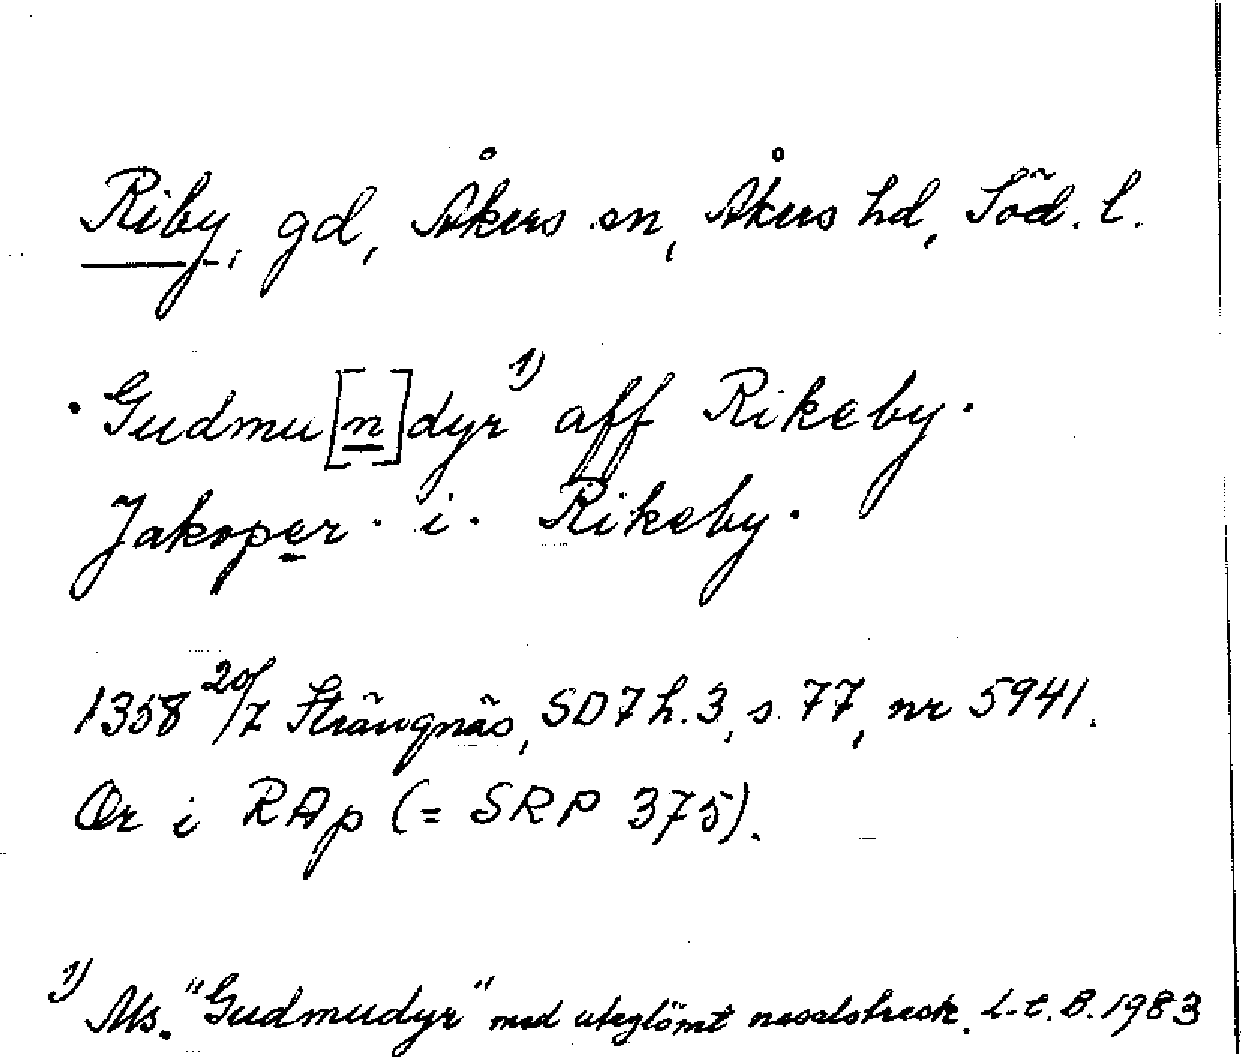 Riby, gd, Åkers sn, Åkers hd, Söd. l.
· Gudmu[n]dyr 1) aff Rikeby ·
Jakoper · i · Rikeby ·
1358 20/7 Strängnäs, SD7 h. 3, s. 77, nr 5941.
Or i RAp (= SRP 375).
1) Ms. "Gudmudyr" med uteglömt nasalstreck. L-t. B. 1983